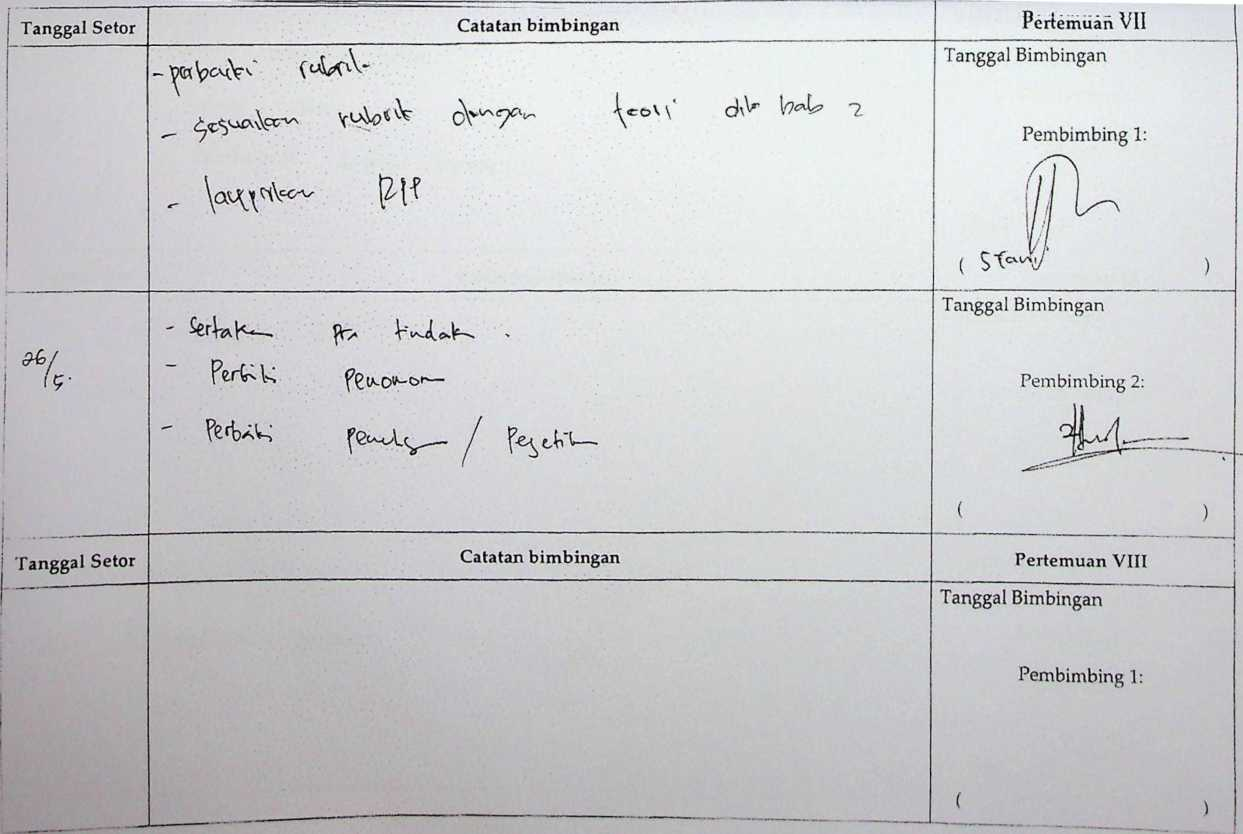 Tanggal Setor Catatan bimbingan Pertemuan VII
- perbaiki rubrik
- sesuaikan rubrik dengan teori di bab 2
- lampirkan RPP
Tanggal Bimbingan
Pembimbing 1:
( Stani )
26/5.
- Sertakan pra tindak.
- Perbaiki
- Perbaiki /
Tanggal Bimbingan
Pembimbing 2:
( )
Tanggal Setor Catatan bimbingan Pertemuan VIII
Tanggal Bimbingan
Pembimbing 1:
( )